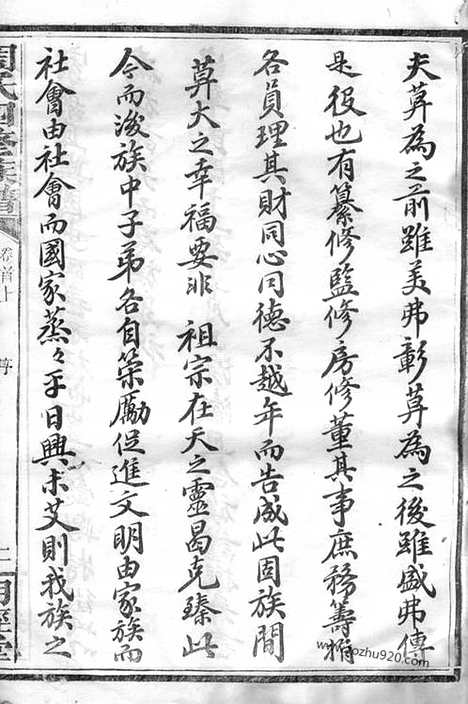 夫莫為之前雖美弗彰莫為之後雖盛弗傳
是役也有纂修監修房修董其事庶務籌捐
各員理其財同心同德不越年而告成此固族間
莫大之幸福要非 祖宗在天之靈曷克臻此
今而後族中子弟各自策勵促進文明由家族而
社會由社會而國家蒸々乎日興未艾則我族之
周氏四修族譜
卷首上 序
www.jiapu920.com